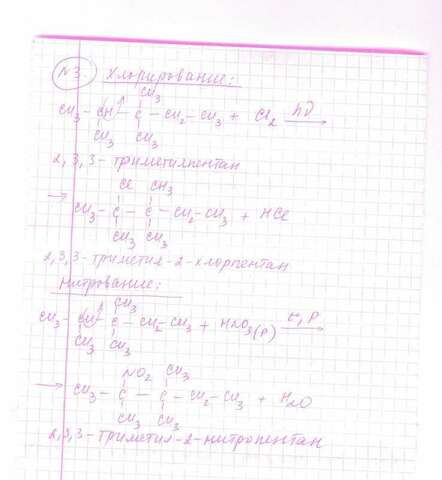 №3. Хлорирование:
CH3
CH3 – CH – C – CH2 – CH3 + Cl2 hν →
CH3 CH3
2,3,3-триметилпентан
Cl CH3
→ CH3 – C – C – CH2 – CH3 + HCl
CH3 CH3
2,3,3-триметил-2-хлорпентан
Нитрование:
CH3
CH3 – CH – C – CH2 – CH3 + HNO3(р) t°, P →
CH3 CH3
NO2 CH3
→ CH3 – C – C – CH2 – CH3 + H2O
CH3 CH3
2,3,3-триметил-2-нитропентан